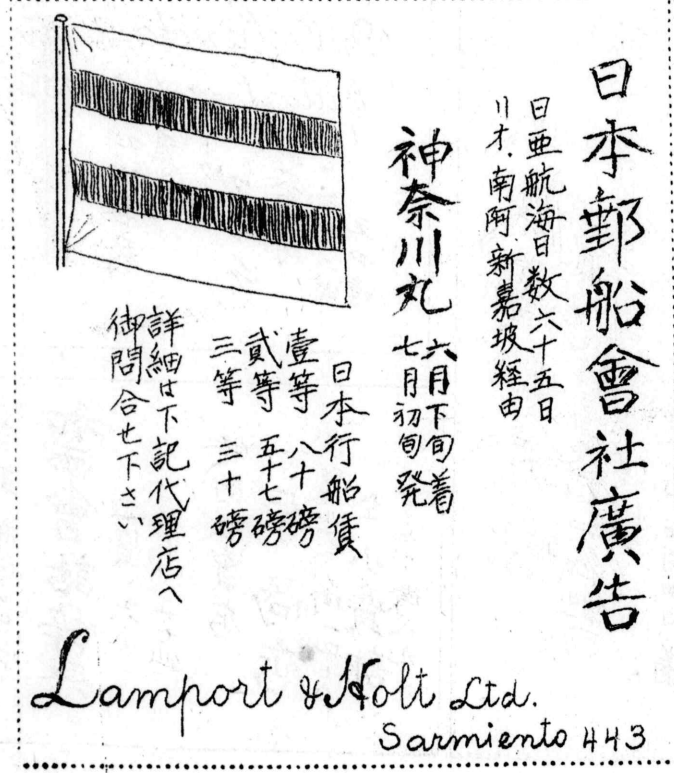 日本郵船會社廣告
日亜航海日数六十五日
リオ、南阿、新嘉坡経由
神奈川丸
六月下旬着
七月初旬発
日本行船賃
壹等 八十磅
貳等 五十七磅
三等 三十磅
詳細は下記代理店へ
御問合せ下さい
Lamport & Holt Ltd.
Sarmiento 443